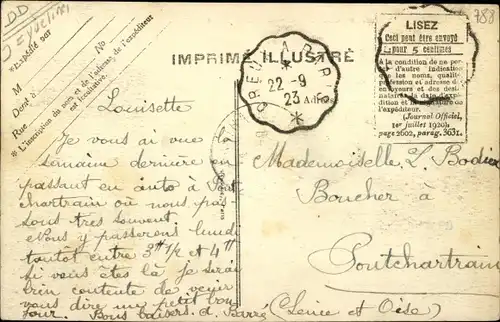 DD
788
IMPRIMÉ ILLUSTRÉ
*Expédié par
M
Demt à
Rue No
* L'inscription du nom et de l'adresse de l'expéditeur
est facultative.
DREUX A PARIS
22-9
23
LISEZ
Ceci peut être envoyé
pour 5 centimes
A la condition de ne porter
d'autre indication
que les noms, qualité,
profession et adresse
d'envoyeurs et des destinataires,
la date d'expédition
et la signature de
l'expéditeur.
(Journal Officiel,
1er juillet 1920)
page 2602, parag. 3631.
Louisette
Je vous ai vue la
semaine dernière en
passant en auto à Pont
chartrain où nous pas
sons très souvent
Nous y passerons lundi
tantôt entre 3H 1/2 et 4H
si vous êtes là je serai
bien contente de venir
vous dire un petit bon
jour. Bons baisers. d. Barré
Mademoiselle L. Bodin
Boucher à
Pontchartrain
(Seine et Oise)